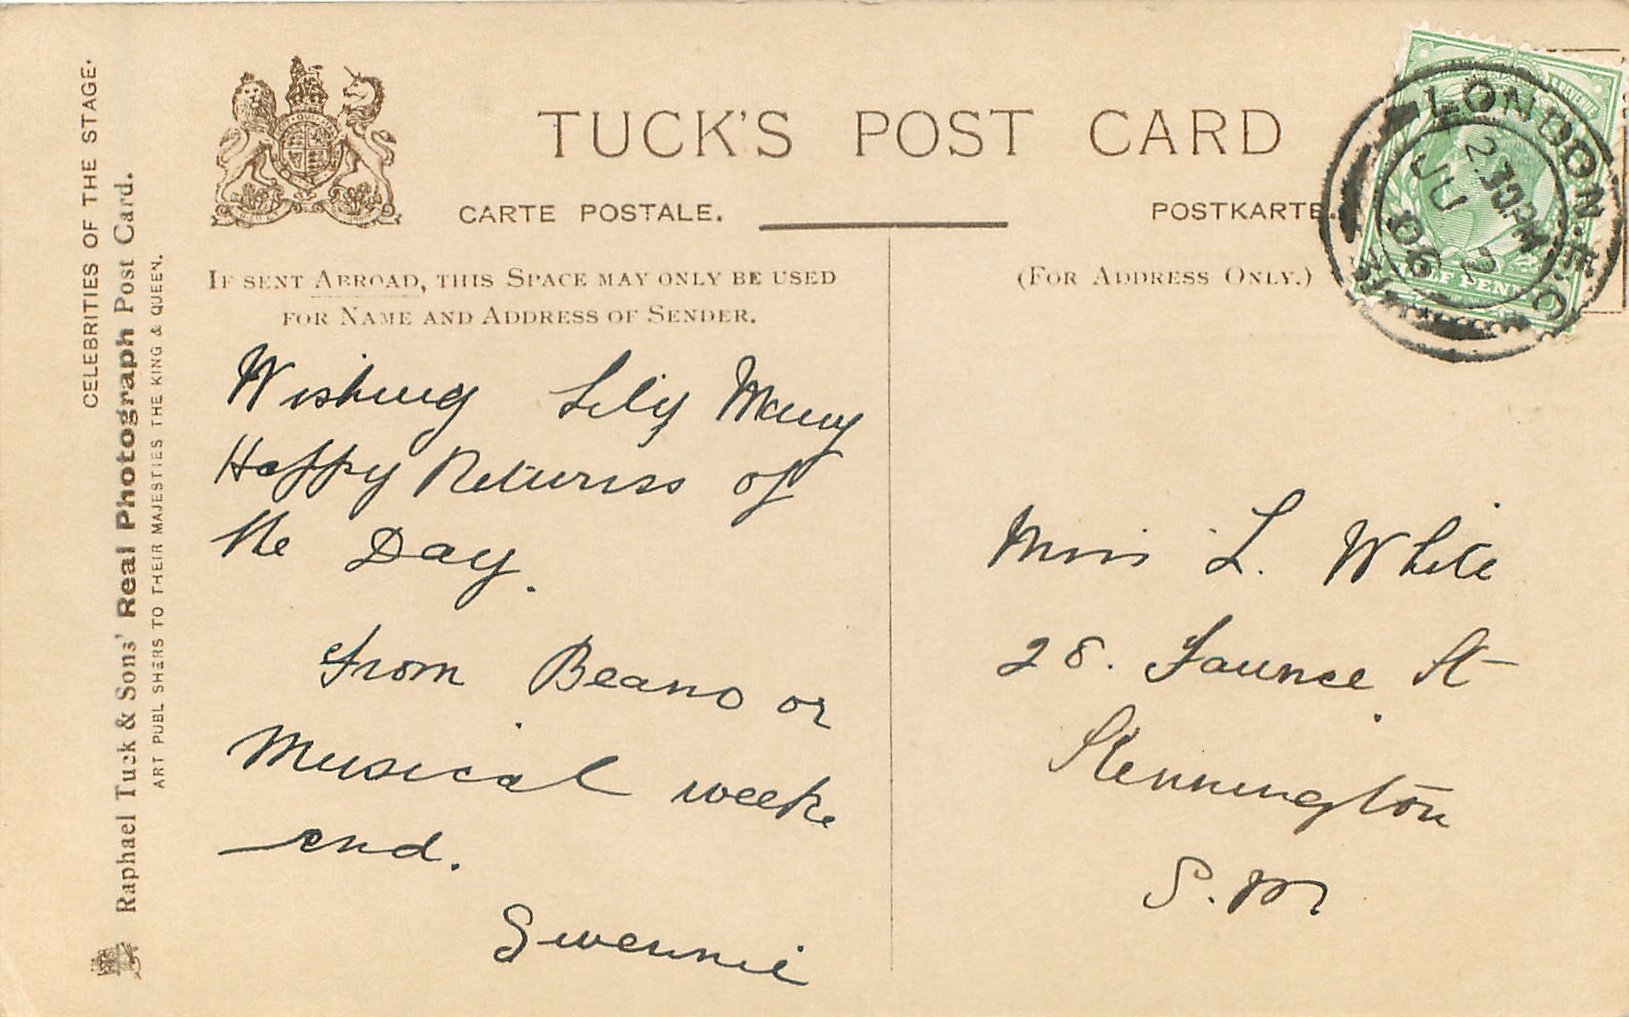 CELEBRITIES OF THE STAGE.
Raphael Tuck & Sons' Real Photograph Post Card.
ART PUBL SHERS TO THEIR MAJESTIES THE KING & QUEEN.
TUCK'S POST CARD
CARTE POSTALE.
POSTKARTE
IF SENT ABROAD, THIS SPACE MAY ONLY BE USED
FOR NAME AND ADDRESS OF SENDER.
(FOR ADDRESS ONLY.)
LONDON. E.C
2.30PM
JU 2
06
REVENUE
HALF PENNY
Wishing Lily Many
Happy Returns of
the Day.
from Beano or
Musical week
end.
Gwennie
Miss L. White
28. Faunce St
Kennington
S.M